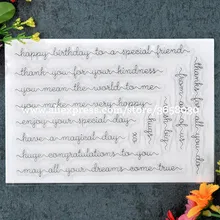 happy birthday to a special friend
thank you for your kindness
you mean the world to me
you make me very happy
enjoy your special day
have a magical day
huge congratulations to you
may all your dreams come true
hugs
xo
from all of us
thanks for all you do